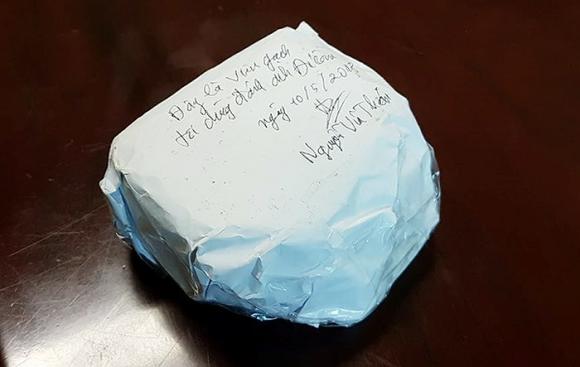 Đây là viên gạch
tôi dùng đánh anh
ngày 10/5/2017
Nguyễn Vũ Thiên